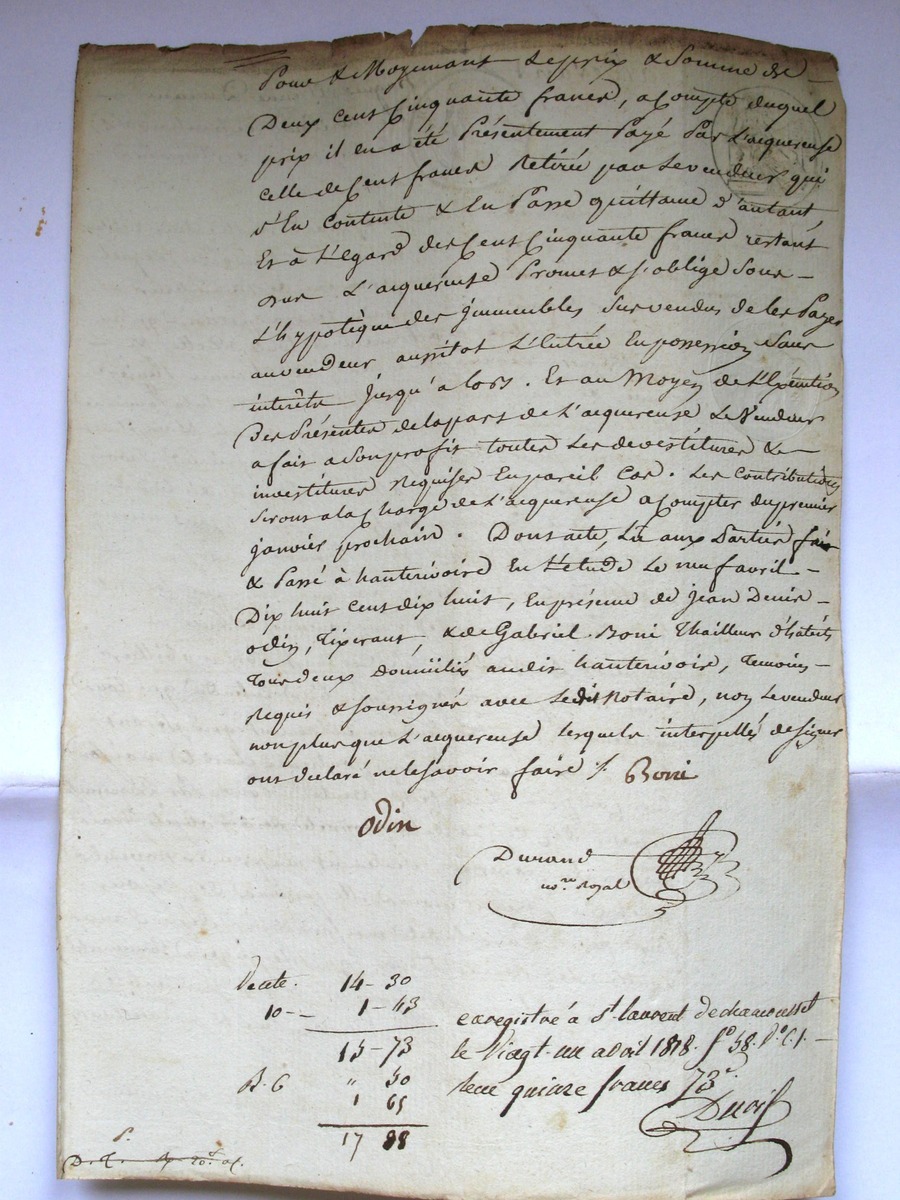 Pour & Moyennant Le prix & Somme de —
Deux cent Cinquante francs, a Compte duquel
prix il en a été Présentement Payé Par L'acquereuse
celle de Cent francs Retirée par Le vendeur qui
s'En Contente & En Passe quittance d'autant
Et à L'egard des Cent Cinquante francs restant
L'acquereuse Promet & s'oblige Sous —
L'hypotèque des jmmeubles Survendus de les Payer
au vendeur aussitot L'Entrée En possession Sans
intérêts Jusqu'alors. Et au Moyen de L'Exécution
Des Présentes de la part de L'acquereuse Le Vendeur
a fait a Son profit toutes Les devestitures & —
investitures Requises En pareil Cas. Les Contributions
Seront a la Charge de L'acquereuse a Compter du premier
janvier prochain. Dont acte, Lu aux Parties fait
& Passé à hauterivoire En L'etude Le neuf avril —
Dix huit cent dix huit, En présence de Jean Denis —
odin, Tixerant, & de Gabriel Boni Thailleur d'habits
Tous deux Domiciliés audit hauterivoire, Temoins —
Requis & soussignés avec Ledit Notaire, non Le vendeur
non plus que L'acquereuse lesquels interpellés de Signer
ont déclaré ne le savoir faire ./. Boni
Odin
Durand
no.re Royal
Vente. 14 - 30
10 -- 1 - 43
15 - 73
R. G " 50
1 65
17 88
enregistré à St laurent de chamousset
le Vingt un avril 1818. f° 58. V° C. 1. —
Recu quinze francs 73 c.